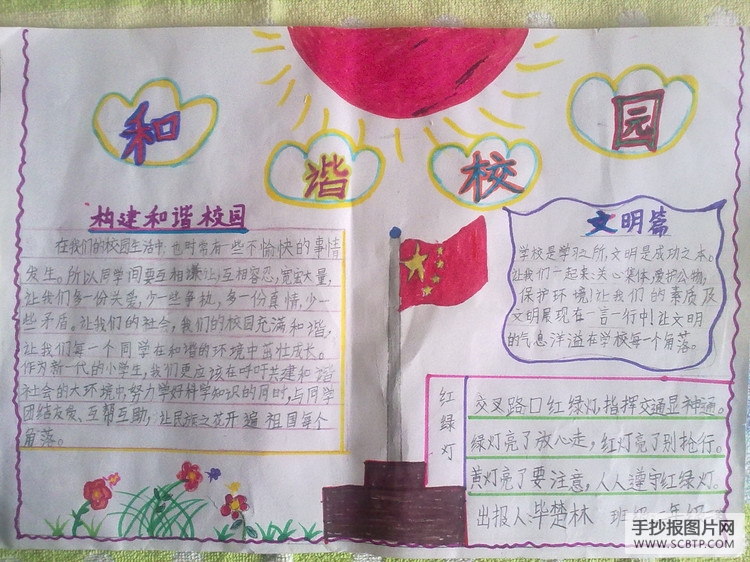 和谐校园
构建和谐校园
在我们的校园生活中,也时常有一些不愉快的事情
发生。所以同学间要互相谦让,互相容忍,宽宏大量,
让我们多一份关爱,少一些争执,多一份真情,少一
些矛盾。让我们的社会,我们的校园充满和谐,
让我们每一个同学在和谐的环境中茁壮成长。
作为新一代的小学生,我们更应该在呼吁共建和谐
社会的大环境中,努力学好科学知识的同时,与同学
团结友爱、互帮互助,让民族之花开遍祖国每个
角落。
文明篇
学校是学习之所,文明是成功之本。
让我们一起来:关心集体,爱护公物,
保护环境!让我们的素质及
文明展现在一言一行中!让文明
的气息洋溢在学校每一个角落。
红绿灯
交叉路口红绿灯,指挥交通显神通。
绿灯亮了放心走,红灯亮了别抢行。
黄灯亮了要注意,人人遵守红绿灯。
出报人:毕楚林 班级
手抄报图片网
WWW.SCBTP.COM